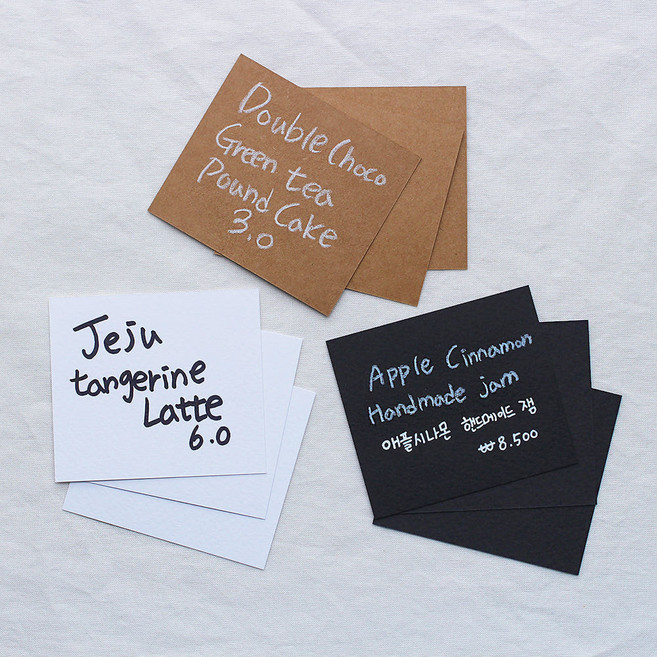 Double Choco
Green tea
Pound Cake
3.0
Jeju
tangerine
Latte
6.0
Apple Cinnamon
Handmade jam
애플시나몬 핸드메이드 잼
₩8.500